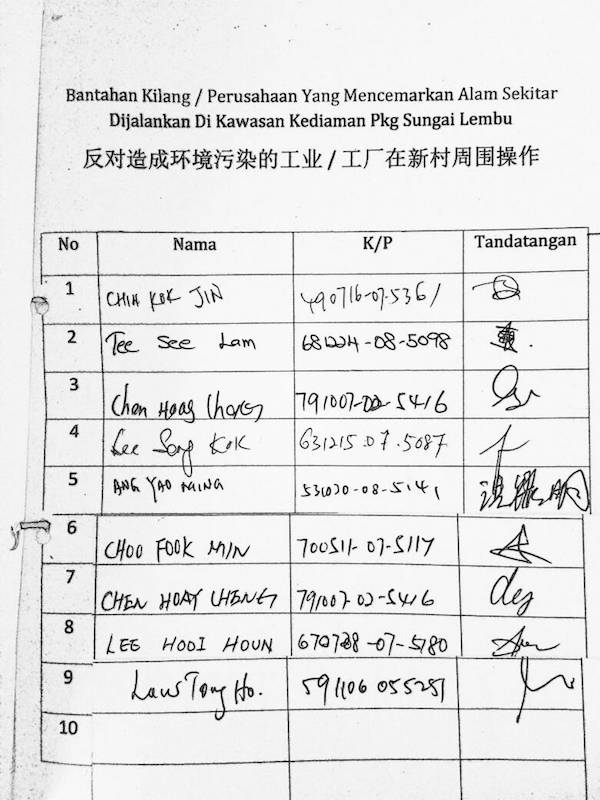 Bantahan Kilang / Perusahaan Yang Mencemarkan Alam Sekitar
Dijalankan Di Kawasan Kediaman Pkg Sungai Lembu
反对造成环境污染的工业 / 工厂在新村周围操作
No Nama K/P Tandatangan
1 CHIN KOK JIN 490716-07-5361
2 Tee See Lam -08-5098
3 Chen 791007-02-5416
4 Lee Song Kok 631215.07.5087
5 ANG YAO MING 531020-08-5141
6 CHOO FOOK MIN 700511-07-5117
7 CHEN HOAY CHENG 791007-02-5416
8 LEE HOOI HOUN -07-5780
9 Law Tong Ho. 591106 055251
10